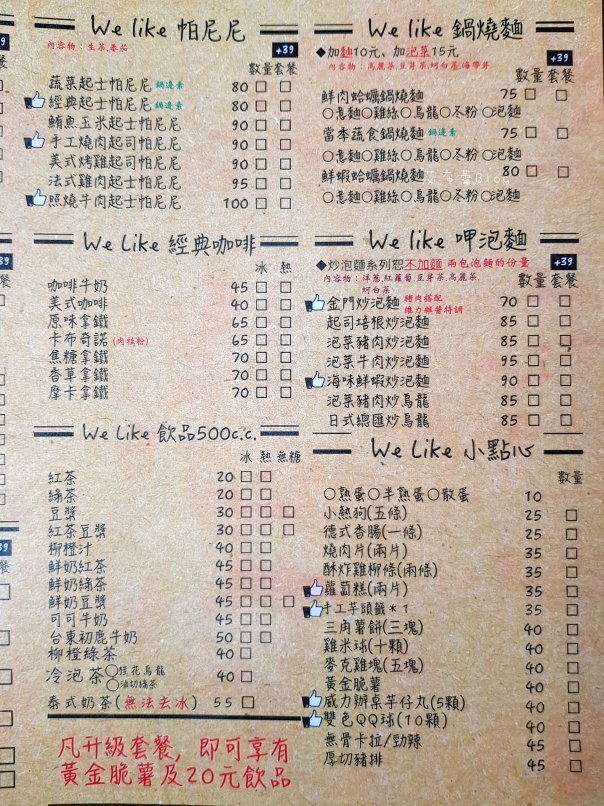 We like 帕尼尼
內容物：生菜.番茄
+39
數量 套餐
蔬菜起士帕尼尼 鍋邊素 80 □ □
經典起士帕尼尼 鍋邊素 80 □ □
鮪魚玉米起士帕尼尼 90 □ □
手工燒肉起司帕尼尼 90 □ □
美式烤雞起司帕尼尼 90 □ □
法式雞肉起士帕尼尼 95 □ □
照燒牛肉起士帕尼尼 100 □ □
We Like 經典咖啡
冰 熱
咖啡牛奶 45 □ □
美式咖啡 40 □ □
原味拿鐵 65 □ □
卡布奇諾(肉桂粉) 65 □ □
焦糖拿鐵 70 □ □
香草拿鐵 70 □ □
摩卡拿鐵 70 □ □
We Like 飲品500c.c.
冰 熱 無糖
紅茶 20 □ □
綠茶 20 □ □
豆漿 30 □ □ □
紅茶豆漿 30 □ □ □
柳橙汁 40 □ □
鮮奶紅茶 45 □ □
鮮奶綠茶 45 □ □
鮮奶豆漿 45 □ □ □
可可牛奶 45 □ □
台東初鹿牛奶 50 □ □
柳橙綠茶 40 □
冷泡茶 ○桂花烏龍 ○油切綠茶 40 □
泰式奶茶(無法去冰) 55 □
凡升級套餐, 即可享有
黃金脆薯及20元飲品
We like 鍋燒麵
◆加麵10元、加泡菜15元
+39
內容物：高麗菜.豆芽菜.蚵白菜.海帶芽
數量 套餐
鮮肉蛤蠣鍋燒麵 75 □ □
○煮麵○雞絲○烏龍○冬粉○泡麵
當季蔬食鍋燒麵 鍋邊素 75 □ □
○煮麵○雞絲○烏龍○冬粉○泡麵
鮮蝦蛤蠣鍋燒麵 80 □ □
○煮麵○雞絲○烏龍○冬粉○泡麵
We Like 呷泡麵
◆炒泡麵系列恕不加麵 兩包泡麵的份量
+39
內容物：洋蔥.紅蘿蔔.豆芽菜.高麗菜.
蚵白菜
數量 套餐
金門炒泡麵 豬肉搭配 維力雜醬特調 70 □ □
起司培根炒泡麵 85 □ □
泡菜豬肉炒泡麵 85 □ □
泡菜牛肉炒泡麵 95 □ □
海味鮮蝦炒泡麵 90 □ □
泡菜豬肉炒烏龍 85 □ □
日式總匯炒烏龍 85 □ □
We Like 小點心
數量
○熟蛋○半熟蛋○散蛋 10
小熱狗(五條) 25 □
德式香腸(一條) 25 □
燒肉片(兩片) 35 □
酥炸雞柳條(兩條) 35 □
蘿蔔糕(兩片) 35 □
手工芋頭籤*1 35 □
三角薯餅(三塊) 40 □
雞米球(十顆) 40 □
麥克雞塊(五塊) 40 □
黃金脆薯 40 □
威力辦桌芋仔丸(5顆) 40 □
雙色QQ球(10顆) 40 □
無骨卡拉/勁辣 45 □
厚切豬排 45 □